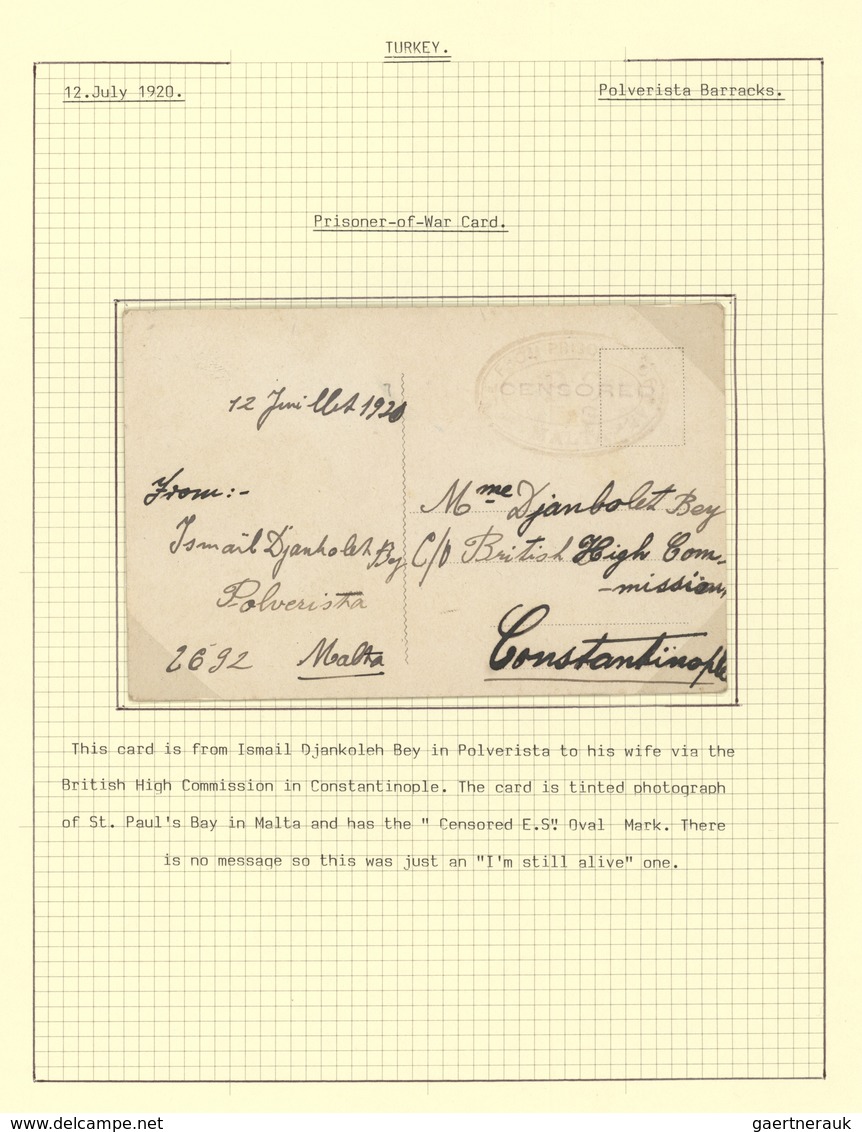 TURKEY.
12.July 1920.
Polverista Barracks.
Prisoner-of-War Card.
FROM PRISONER
CENSORED
MALTA
12 Juillet 1920
From:-
Ismaïl Djanbolet Bey
Polverista
2692 Malta
Mme Djanbolet Bey
C/o British High Com-
-mission,
Constantinople
This card is from Ismail Djankoleh Bey in Polverista to his wife via the
British High Commission in Constantinople. The card is tinted photograph
of St. Paul's Bay in Malta and has the " Censored E.S". Oval Mark. There
is no message so this was just an "I'm still alive" one.
gaertnerauk